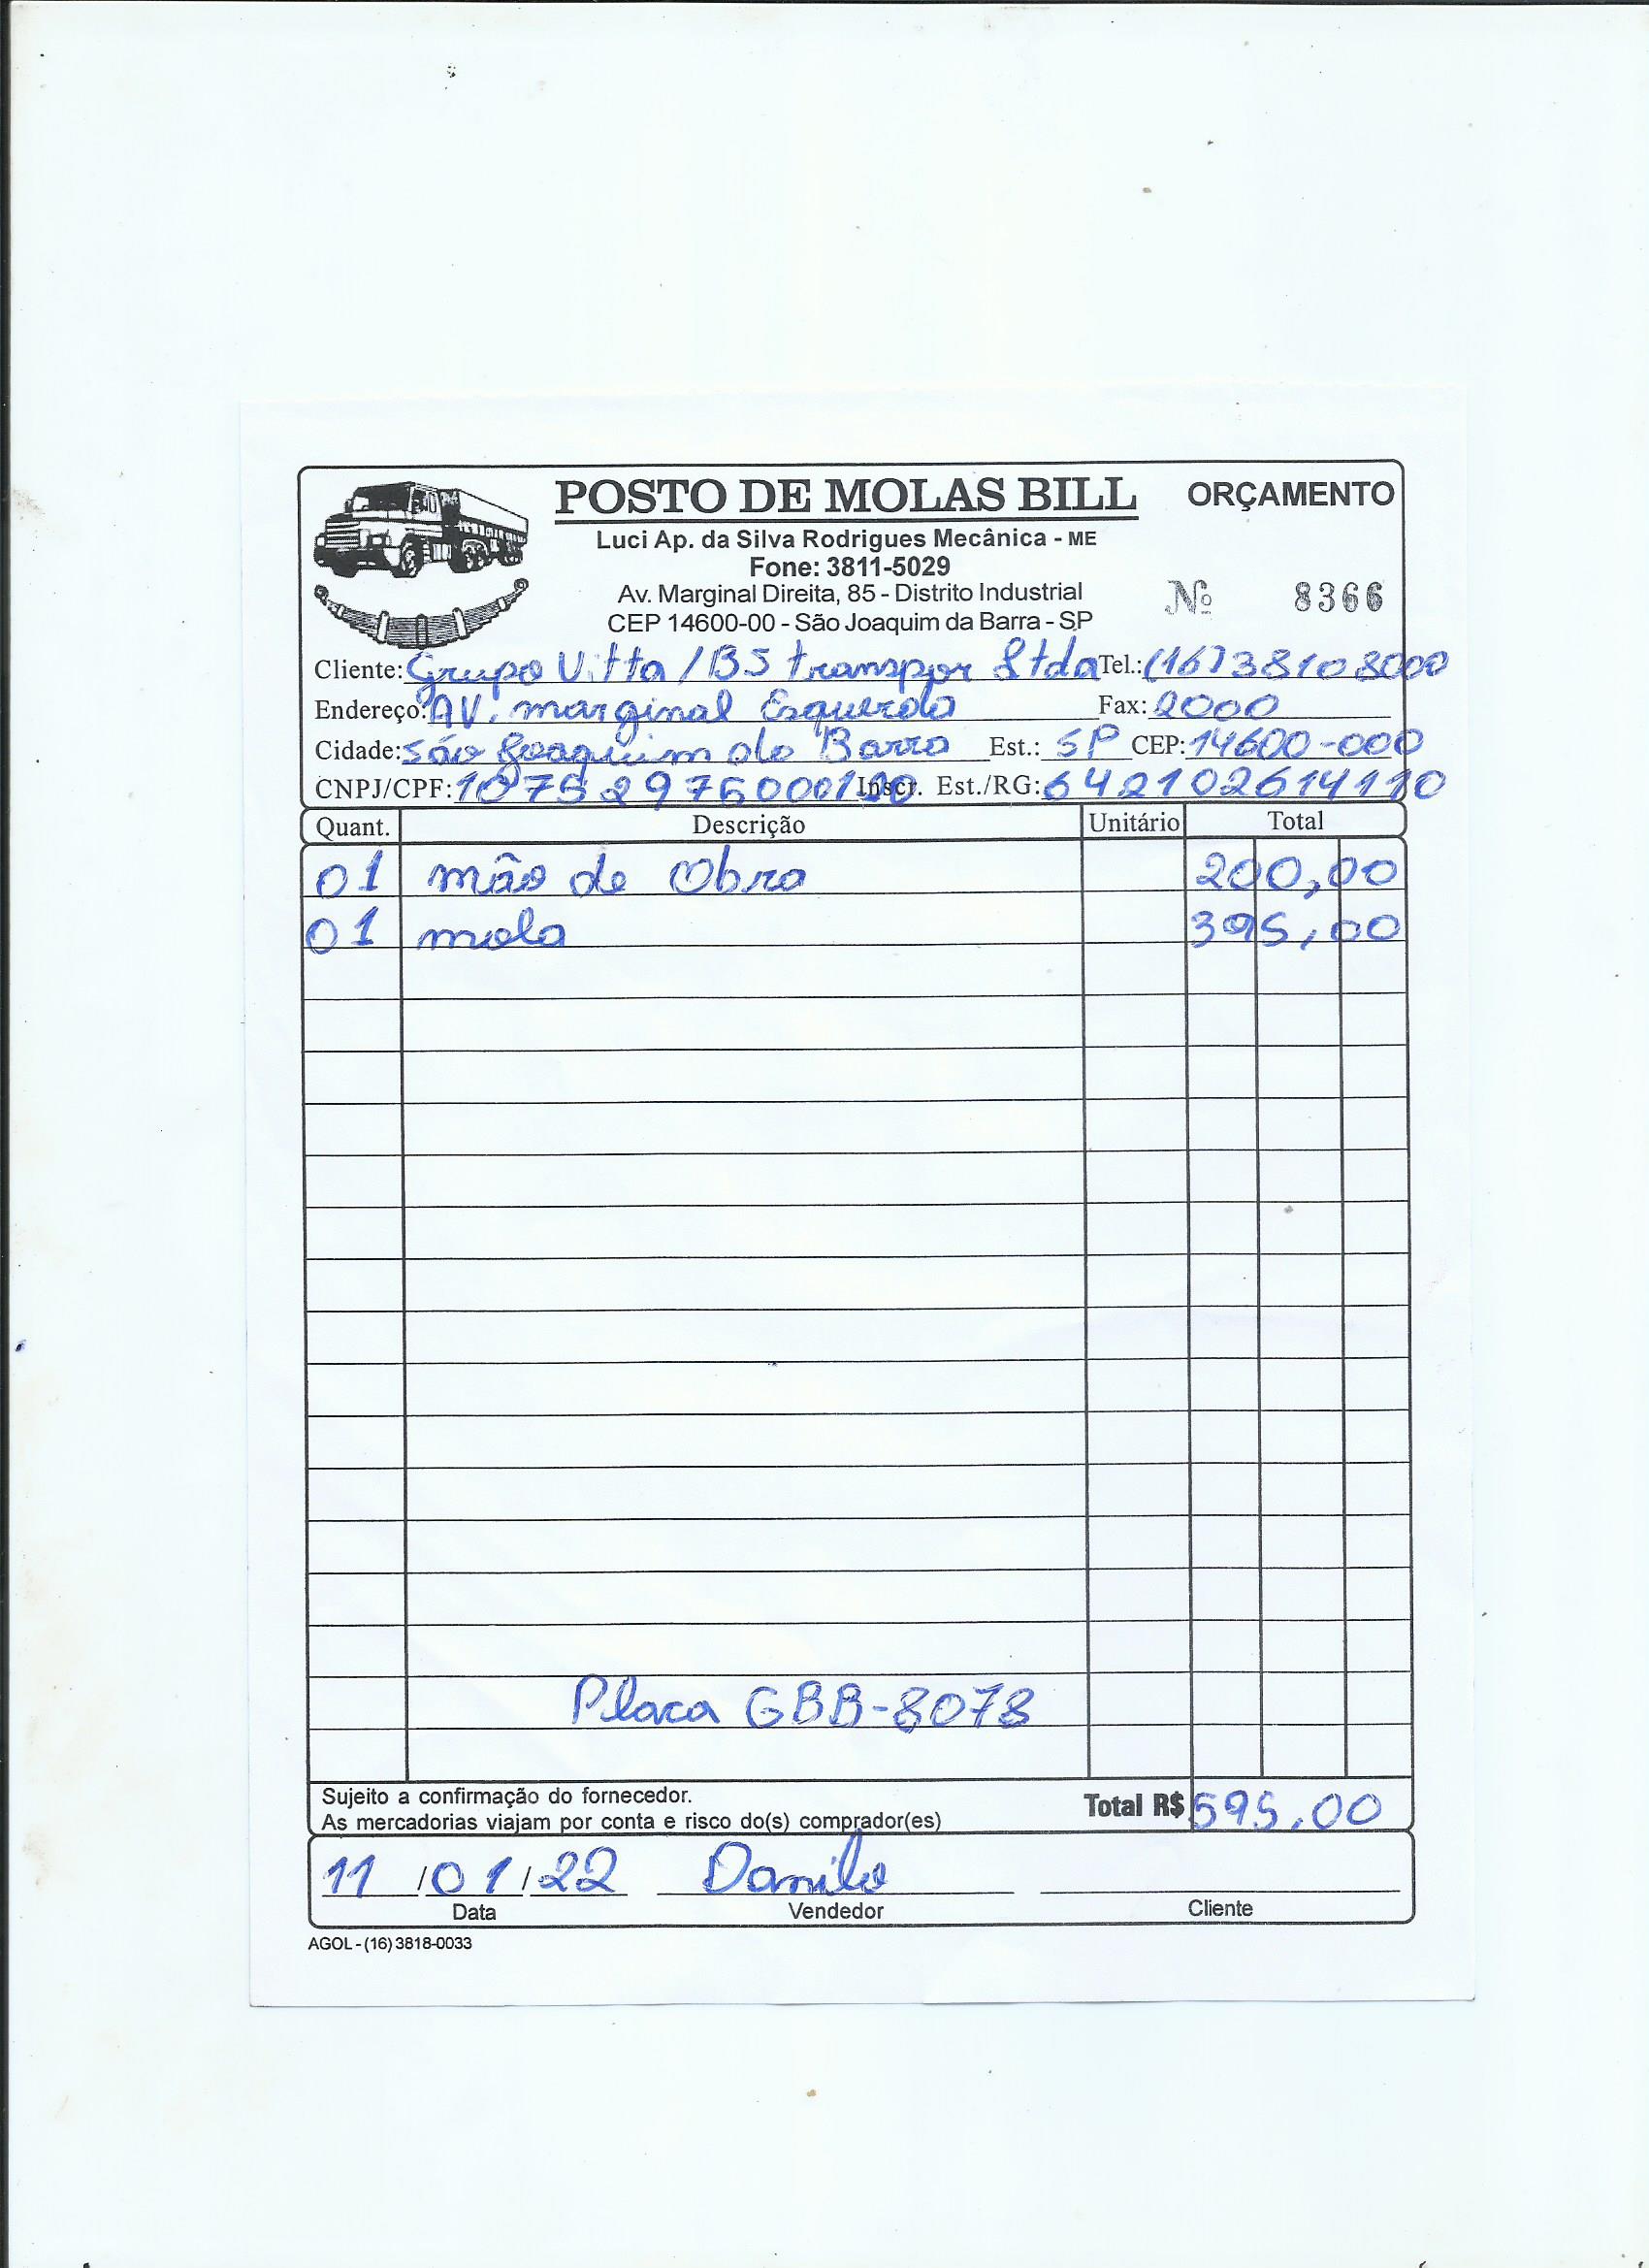 POSTO DE MOLAS BILL ORÇAMENTO
Luci Ap. da Silva Rodrigues Mecânica - ME
Fone: 3811-5029
Av. Marginal Direita, 85 - Distrito Industrial
Nº 8366
CEP 14600-00 - São Joaquim da Barra - SP
Cliente: Grupo Vitta / BS transpor Ltda Tel.: (16) 3810 8000
Endereço: AV. marginal Esquerda Fax: 2000
Cidade: São Joaquim da Barra Est.: SP CEP: 14600-000
CNPJ/CPF: Inscr. Est./RG: 642102614110
Quant. Descrição Unitário Total
01 mão de Obra 200,00
01 mola 395,00
Placa GBB-8078
Sujeito a confirmação do fornecedor.
As mercadorias viajam por conta e risco do(s) comprador(es)
Total R$ 595,00
11 / 01 / 22 Danilo
Data Vendedor Cliente
AGOL - (16) 3818-0033